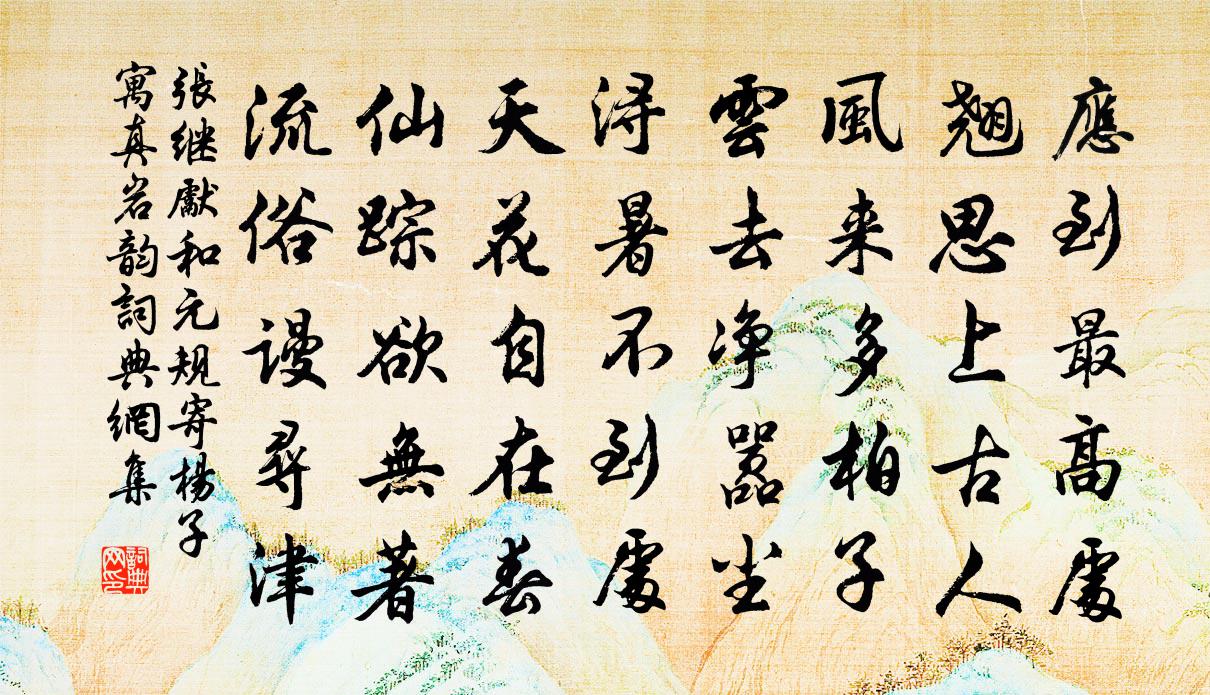 應到最高處
翹思上古人
風来多柏子
雲去净嚣尘
浔暑不到處
天花自在春
仙踪欲無著
流俗謾尋津
張继獻和元規寄楊子
寓真岩韵詞典網集
詞典网印